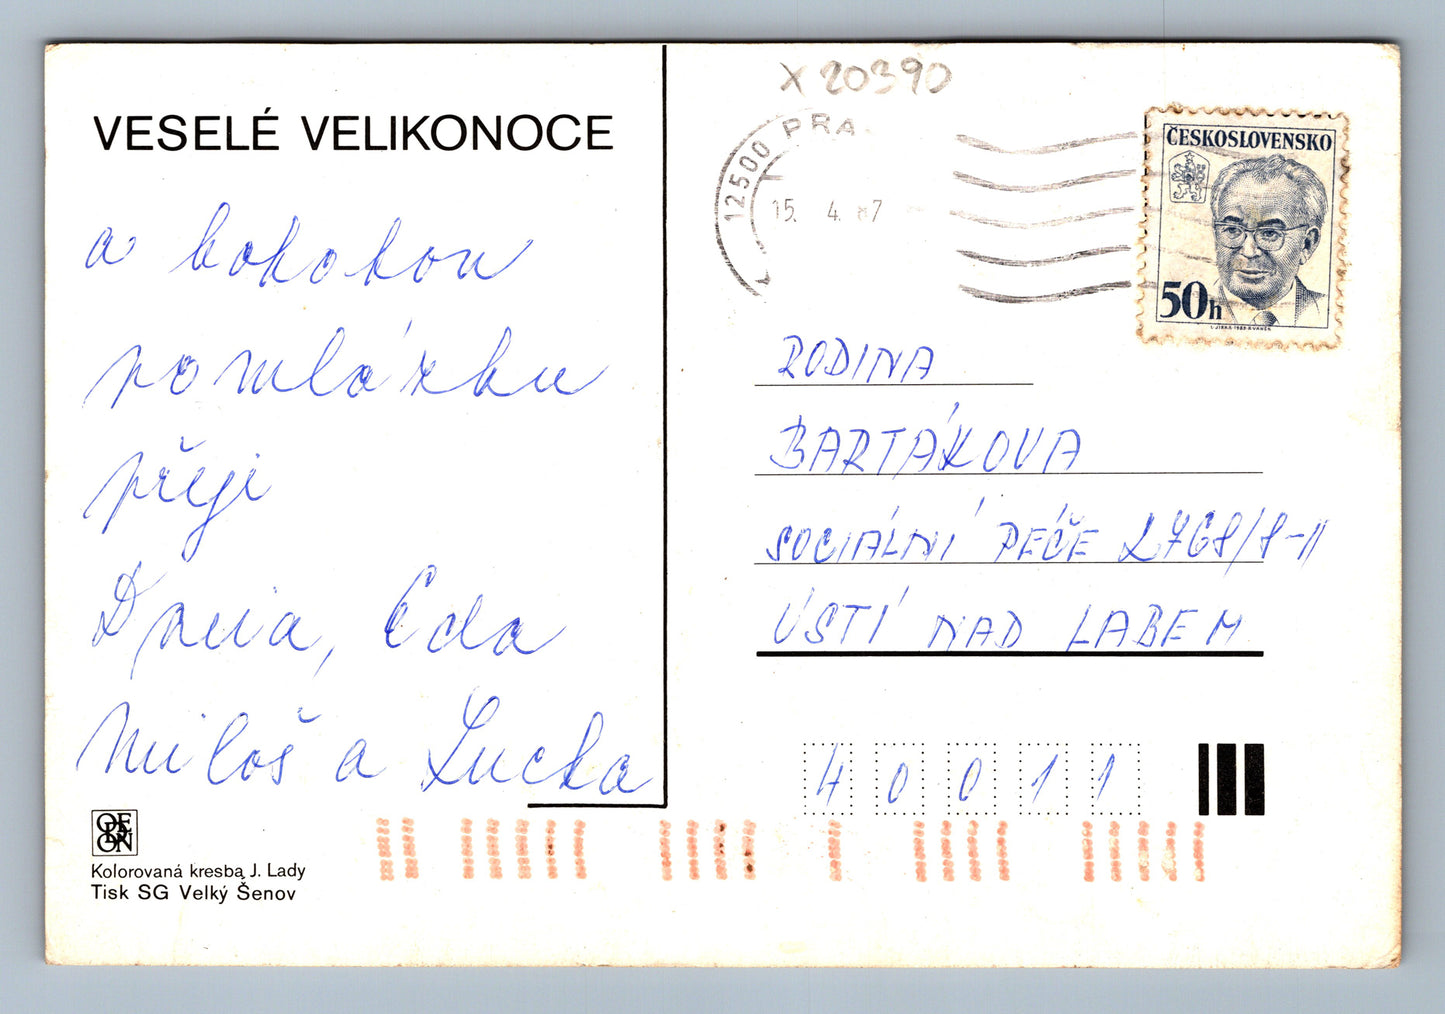 VESELÉ VELIKONOCE
a bohatou
pomlázku
přeji
Eda
Miloš a Lucka
OFF
PA
ON
Kolorovaná kresba J. Lady
Tisk SG Velký Šenov
X 20390
12500 PRA
15. 4. 87
ČESKOSLOVENSKO
50h
RODINA
BARTÁKOVA
SOCIÁLNÍ PÉČE 2768/8-11
ÚSTÍ NAD LABEM
40011